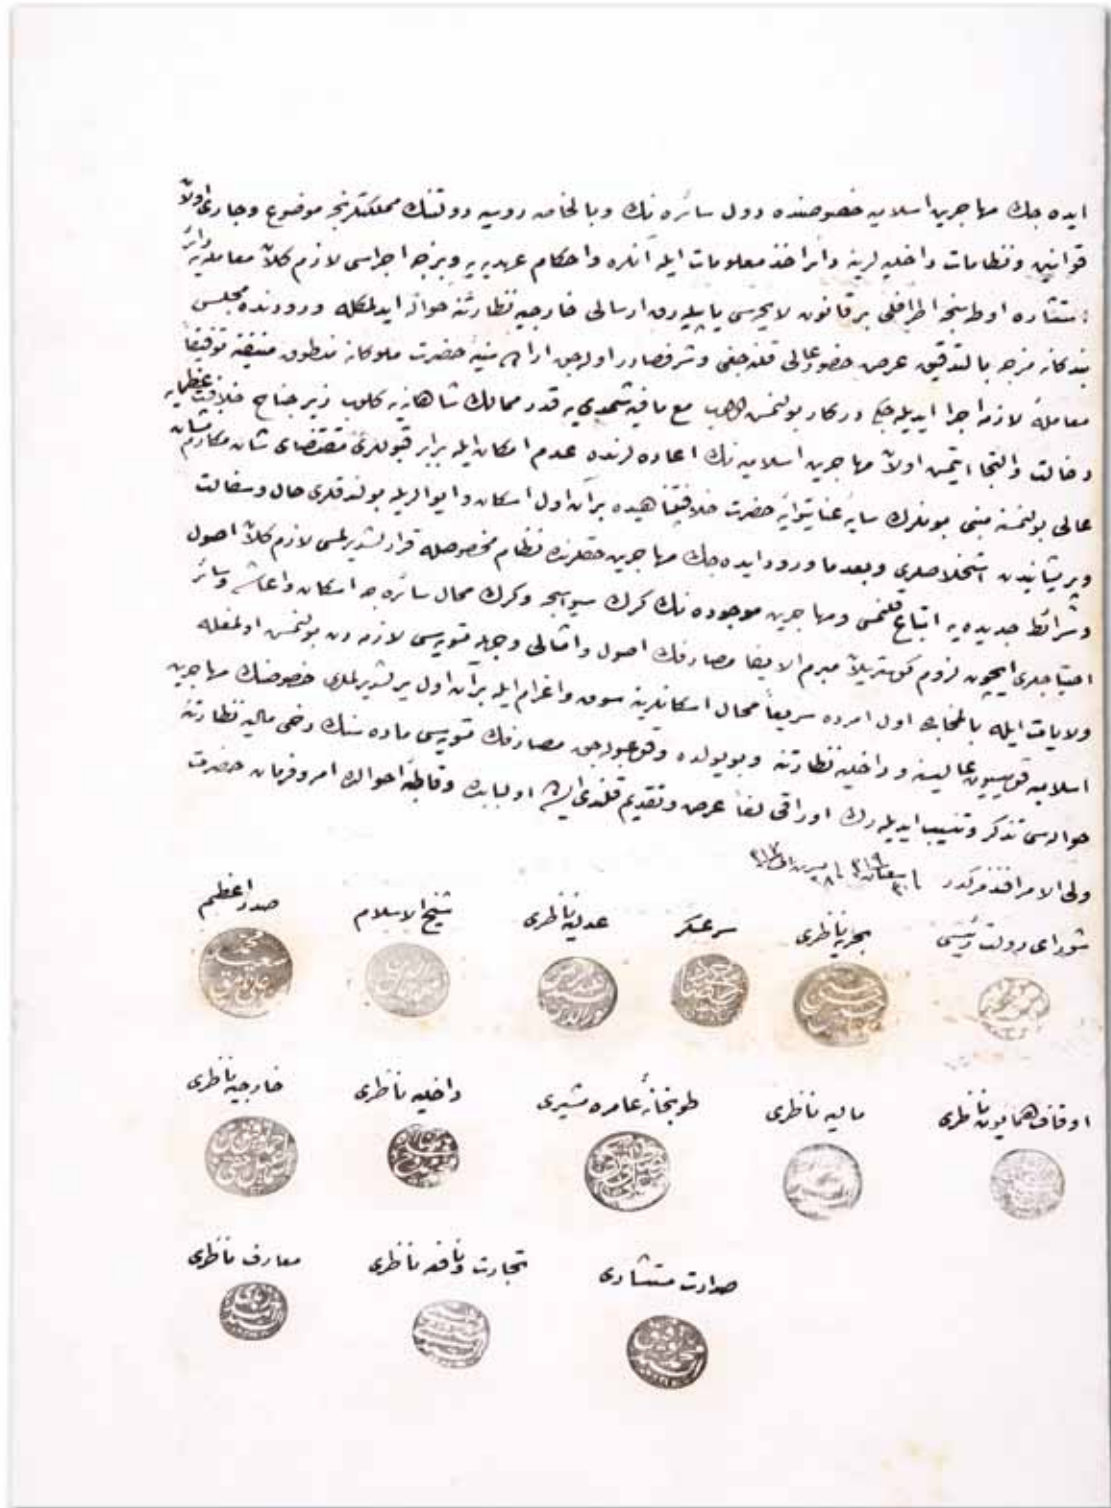 ایده جك مهاجرین اسلامیه خصوصنده دول سائره نك وبالخاصه روسیه دولتنك مملكتلرنجه موضوع وجاری اولان
قوانین ونظامات داخلیه لرینه دائر اخذ معلومات ایله آنلره واحكام عهدیه یه وبزجه اجراسی لازم كلان معاملاته دائر
استشاره اولنه رق اطرافلی بر قانون لایحه سی یاپیله رق ارسالی خارجیه نظارتنه حواله ایدلمكله ورودنده مجلس
بندكانه مزجه بالتدقیق عرض حضور عالی قلنه جغی وشرفصادر اوله جق اراده سنیه حضرت ملوكانه منطوق منیفنه توفیقا
معامله لازمه اجرا ایدیله جكی دركار بولنمش مع مافیه شمدی یه قدر ممالك شاهانه یه كلوب زیر جناح خلافت عظمایه
دخالت والتجا ایتمش اولان مهاجرین اسلامیه نك اعاده لرنده عدم امكان ایله برابر قبوللری مقتضای شان مكارمنشان
عالی بولنمسنه مبنی بونلرك سایه عنایتوایه حضرت خلافتپناهیده بر آن اول اسكان وایوالریله بولندقلری حال وسفالت
وپریشانیدن استخلاصلری وبعدما ورود ایده جك مهاجرین حقلرنده نظام مخصوصله قرارلشدیرلمسی لازم كلان اصول
وشرائط جدیده یه اتباع قلنمسی ومهاجرین موجوده نك كرك سیواسجه وكرك محال سائره جه اسكان واعاشه وسائر
احتیاجلری ایچون لزوم كوستریلان مبرم الایفا مصارفك اصول وامثالی وجهله تسویه سی لازمه دن بولنمش اولمغله
ولایات ایله بالمخابره اول امرده سریعا محال اسكانلرینه سوق واعزام ایله بر آن اول یرلشدیرلملری خصوصنك مهاجرین
اسلامیه قومیسیون عالیسنه وداخلیه نظارتنه وبو یولده وقوعبوله جق مصارفك تسویه سی ماده سنك دخی مالیه نظارتنه
حواله سی تذكر وتنسیب ایدیله رك اوراقی لفا عرض وتقدیم قلندی ایسه ده اولبابده وقاطبه احوالده امر وفرمان حضرت
ولی الامر افندمزكدر
صدر اعظم شیخ الاسلام عدلیه ناظری سرعسكر بحریه ناظری شورای دولت رئیسی
خارجیه ناظری داخلیه ناظری طوپخانه عامره مشیری مالیه ناظری اوقاف همایون ناظری
معارف ناظری تجارت ونافعه ناظری صدارت مستشاری